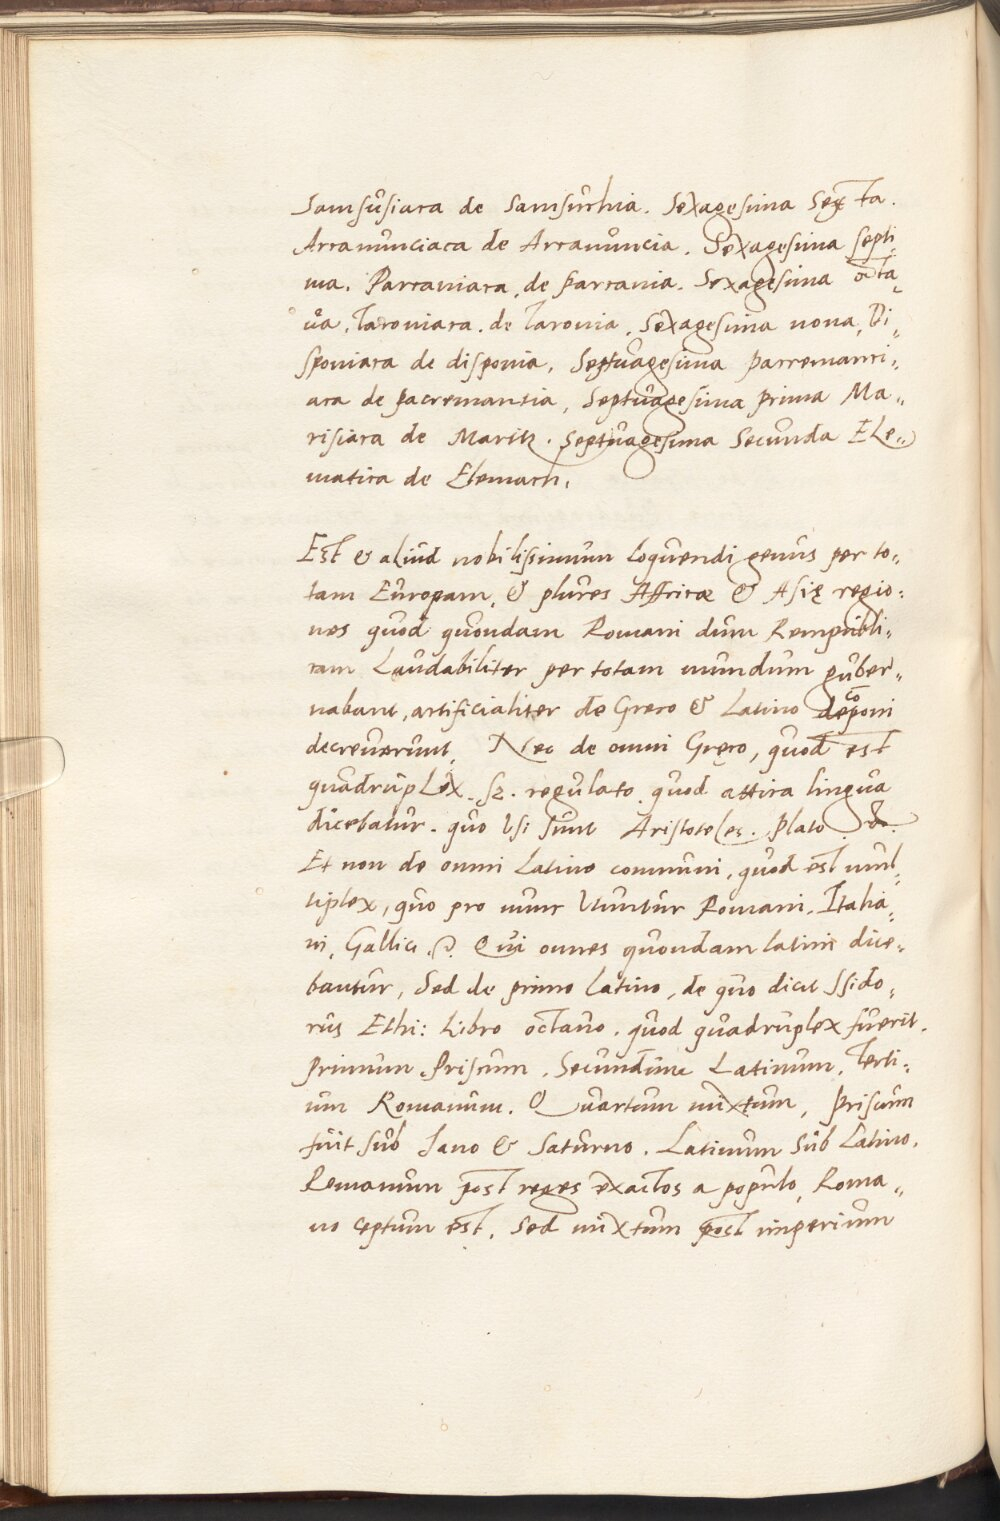 Samsusiara de Samsurhia. Sexagesima Sexta.
Arranunciara de Arranuncia. Sexagesima septi„
ma. Parraniara, de parrania. Sexagesima octa„
ua, Taroniara. de Taronia, Sexagesima nona, Di„
sponiara de disponia, Septuagesima parremanci„
ara de parremantia, Septuagesima prima Ma„
risiara de Maritz. Septuagesima Secunda Ele„
matira de Elemarh.
Est & aliud nobilissimum loquendi genus per to„
tam Europam, & plures Affricæ & Asię regio:
nes quod quondam Romani dum Rempubli„
cam Laudabiliter per totam mundum guber„
nabant, artificialiter de Greco & Latino decponi
decreuerunt, Nec de omni Gręco, quod est
quadruplex. sz. regulato quod attica lingua
dicebatur. quo Usi sunt Aristoteles. Plato &.
Et non de omni Latino communi, quod est mul„
tiplex, quo pro nunc Utuntur Romani, Italia„
ni, Gallici. Qui omnes quondam latini dice„
bantur, Sed de primo Latino, de quo dicit Isido„
rus Ethi: Libro octauo. quod quadruplex fuerit.
Primum Priscum, Secundum Latinum, Terti„
um Romanum. Quartum mixtum, Priscum
fuit sub Iano & Saturno. Latinum Sub Latino.
Romanum post reges exactos a populo, Roma„
no ceptum est. Sed mixtum post imperium